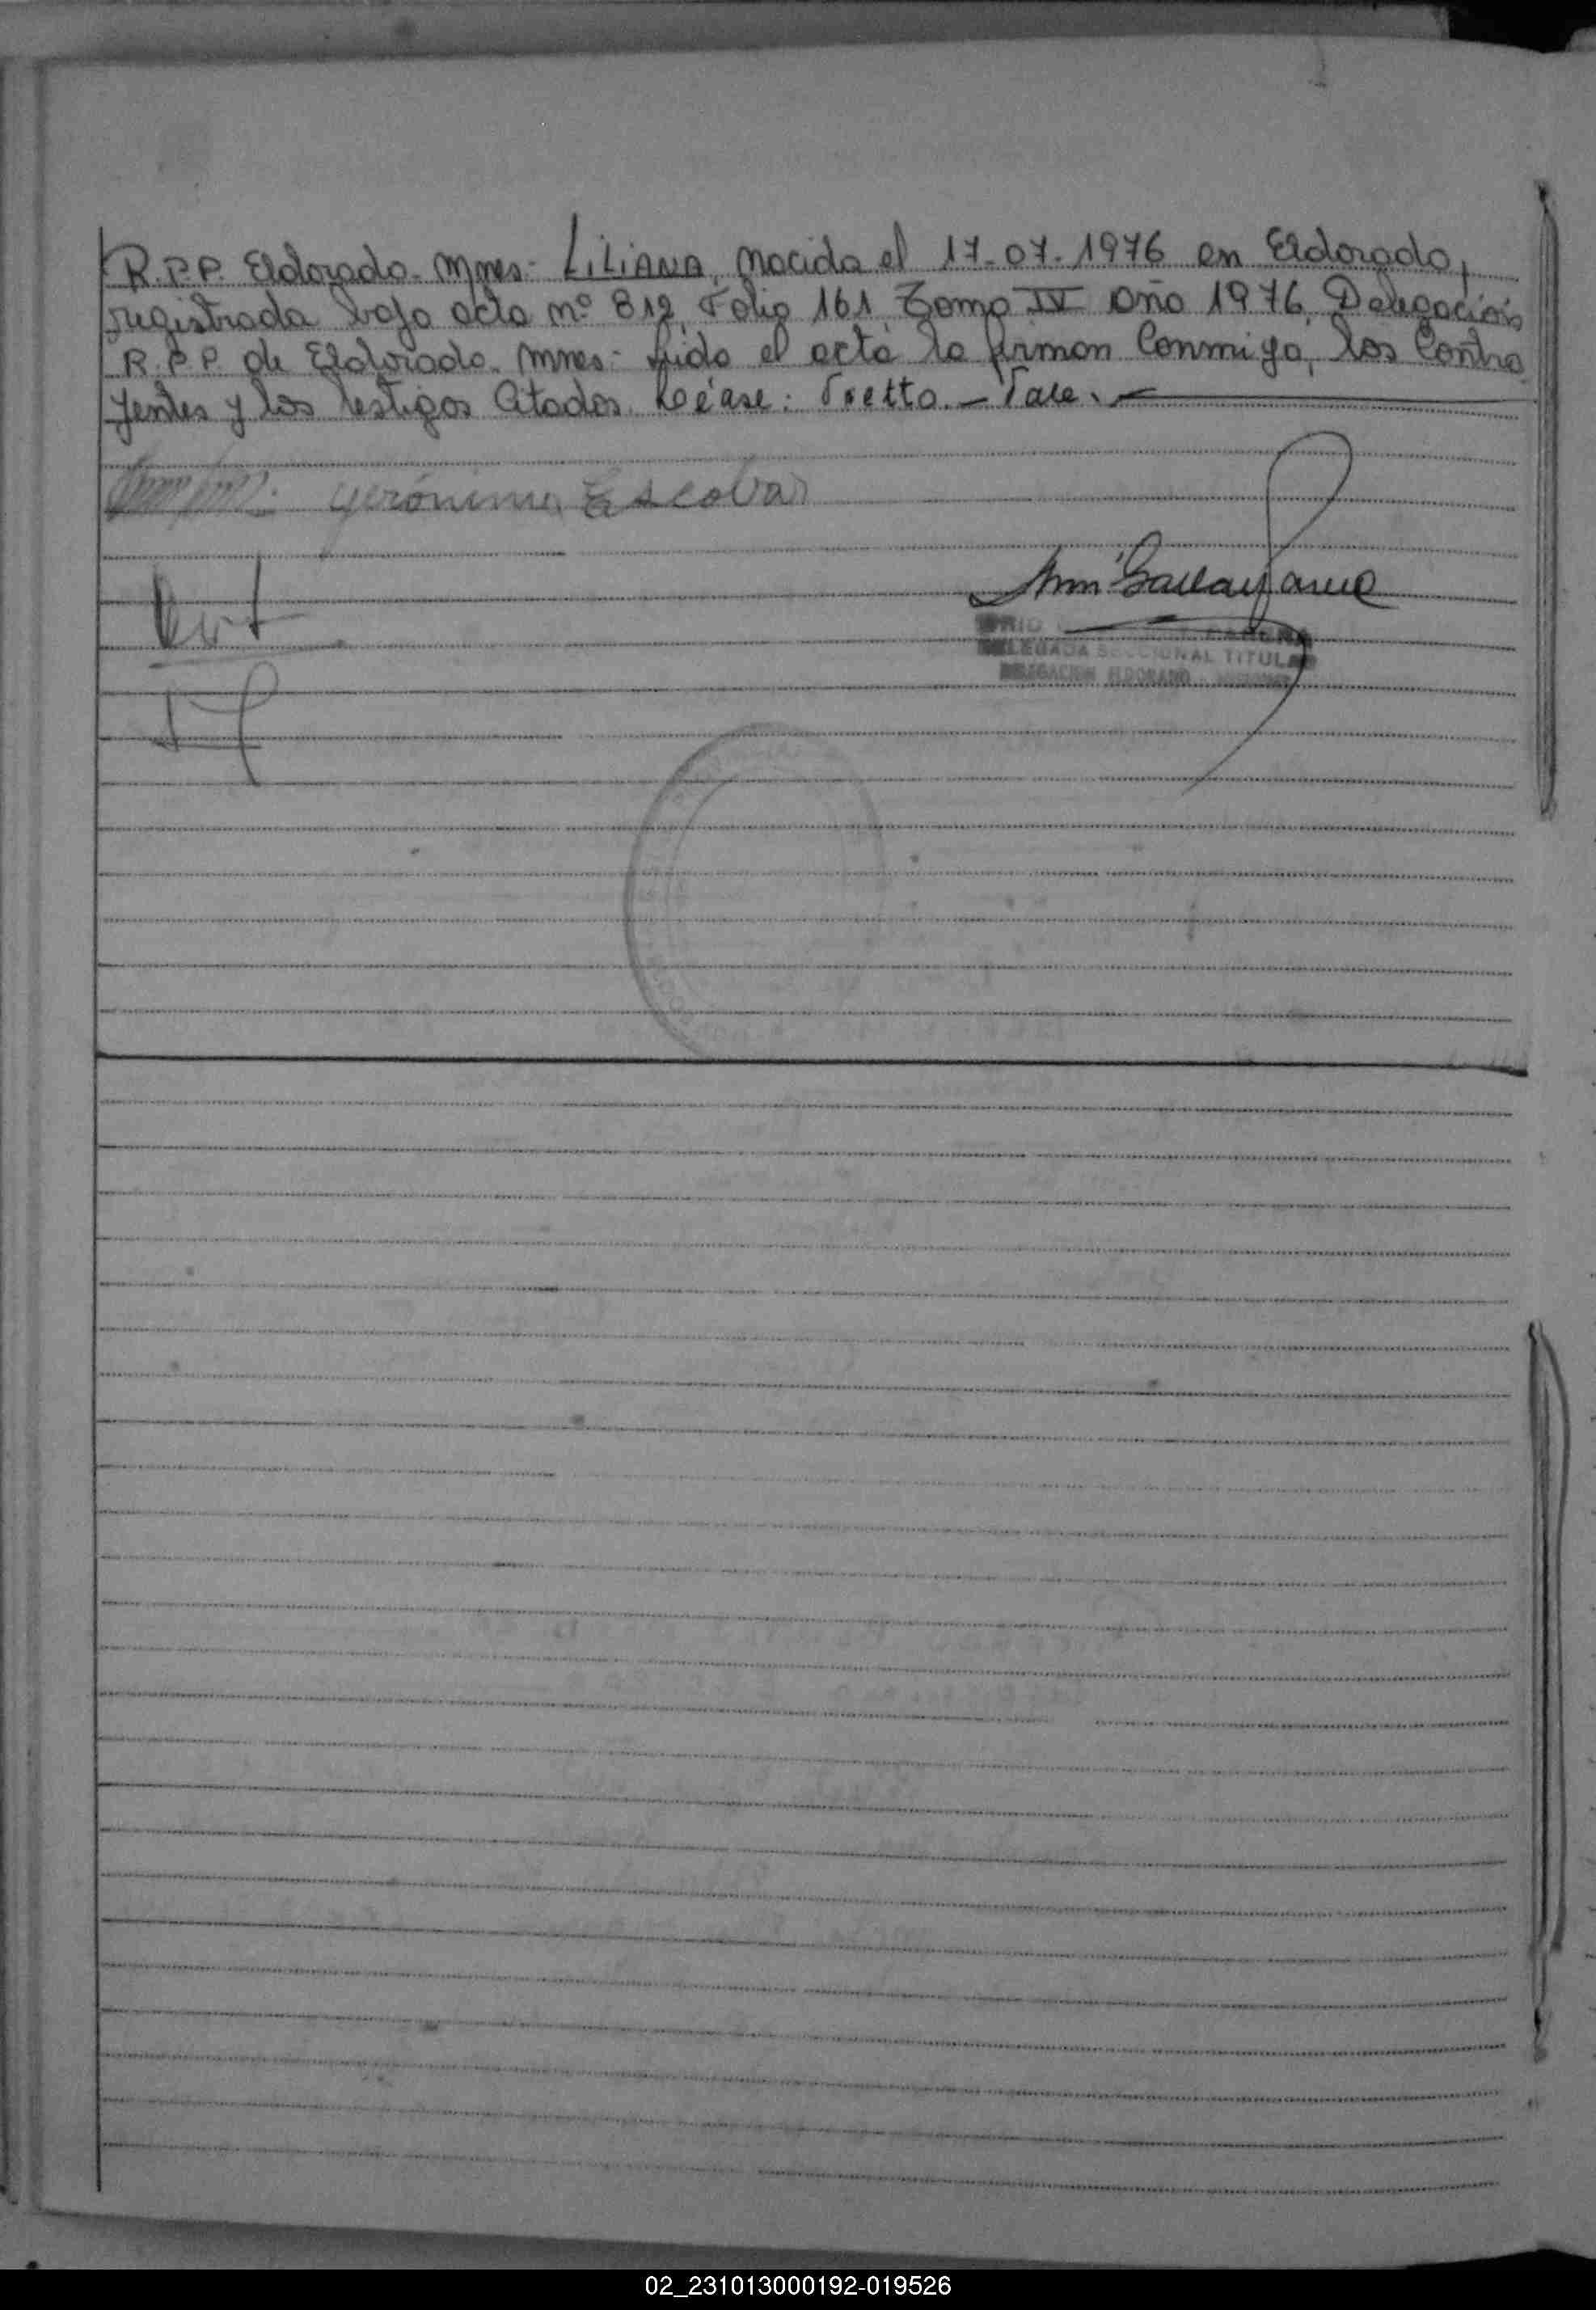 R.P.P. Eldorado. Mnes: LiLiANA, nacida el 17-07-1976 en Eldorado,
registrada bajo acta nº 812, Folio 161, Tomo IV año 1976, Delegación
R.P.P. de Eldorado. Mnes: Leida el acta la firman Conmigo, los Contra
yentes y los testigos Citados. Léase: Tretto. - Vale.
Gerónimo Escobar
DELEGADA SECCIONAL TITULAR
DELEGACION ELDORADO
02_231013000192-019526